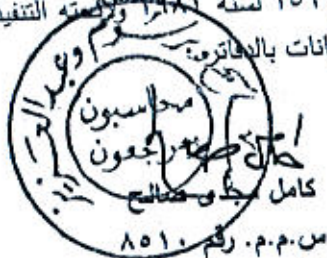 ١٥٩ لسنة ١٩٨١ ولائحته التنفيذية
انات بالدفاتر.
محاسبون
مراجعون
كامل مجدى صالح
س.م.م. رقم ٨٥١٠